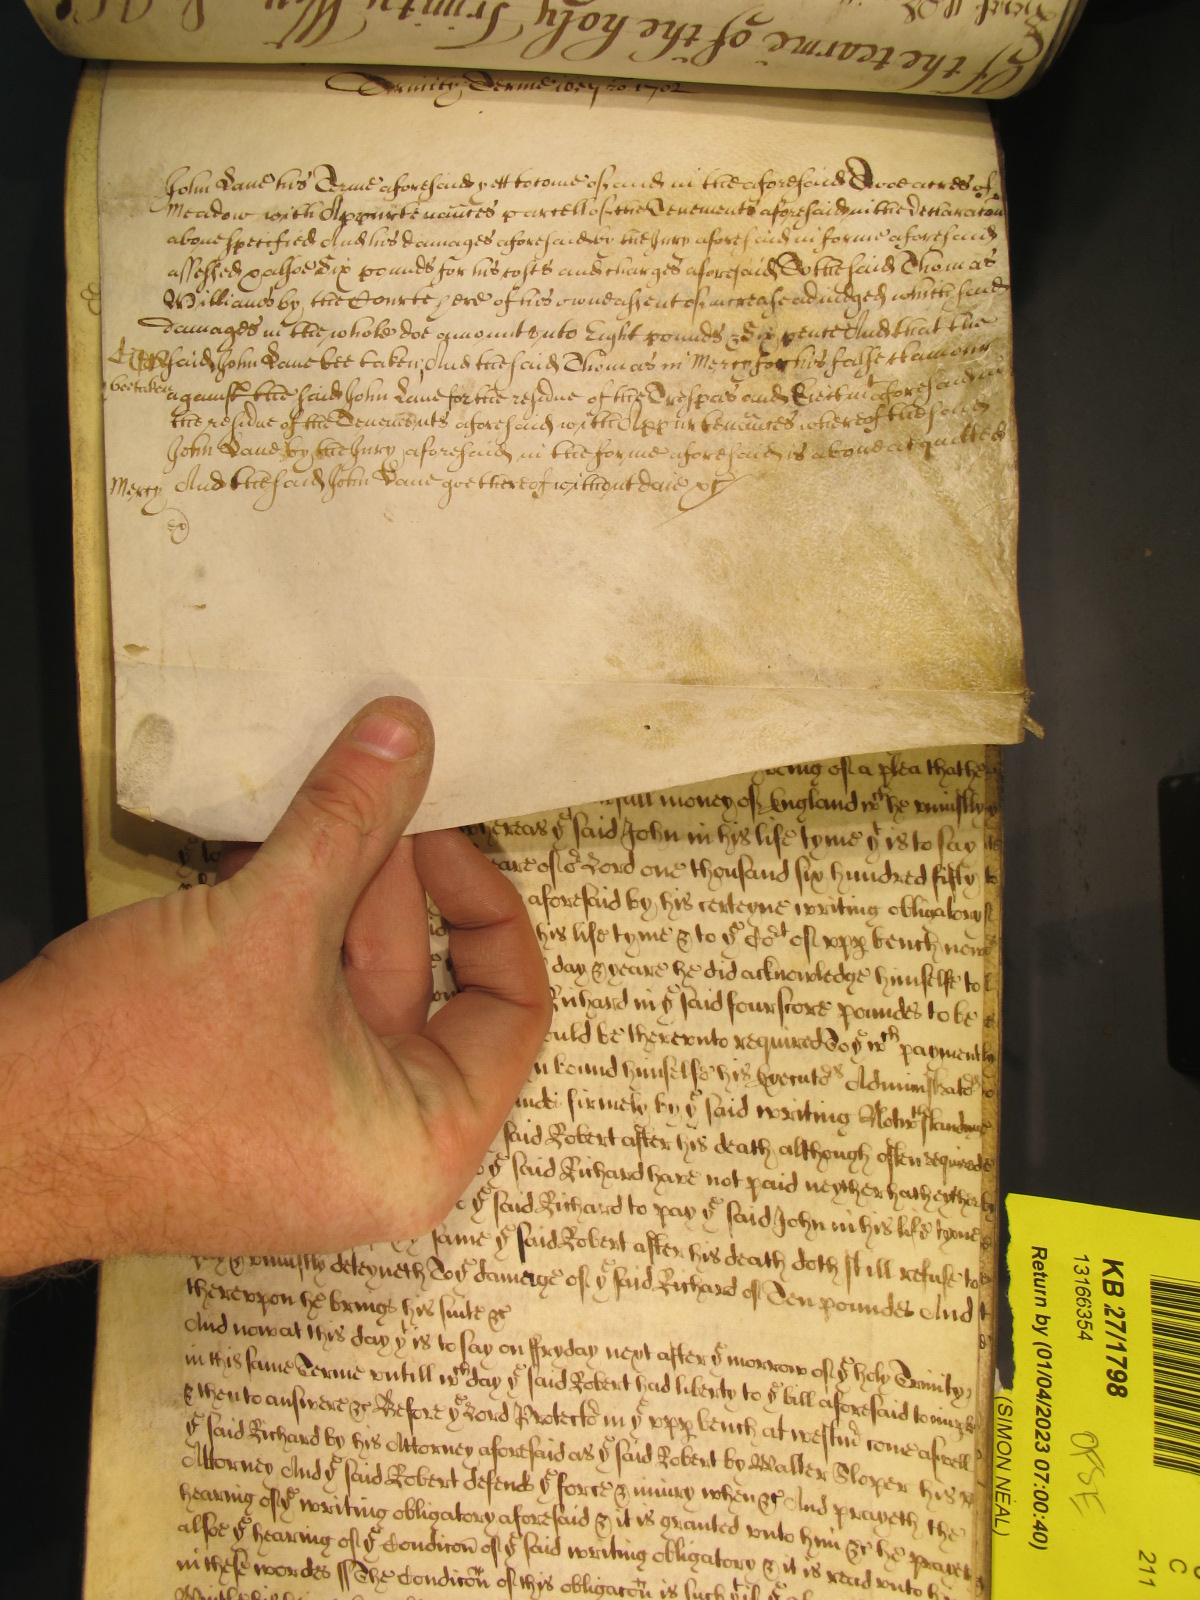 Of the tearme of the holy Trinity
Trinity Terme 1657 ro 1702
John Lane his Terme aforesaid yett to come of and in the aforesaid Twoe acres of
Meadow with Appurtenances parcell of the Tenements aforesaid in the declaracon
above specified And his damages aforesaid by the Jury aforesaid in forme aforesaid
assessed & alsoe Six pounds for his costs and charges aforesaid To the said Thomas
Williams by the Courte here of his owne assent of increase adiudged which said
damages in the whole doe amount unto Eight pounds & Six pence And that the
said John Lane bee taken, And the said Thomas in Mercy for his false clamour
bee taken
against the said John Lane for the residue of the Trespas and Eiectmt aforesaid in
the residue of the Tenements aforesaid with Appurtenances whereof the said
John Lane by the Jury aforesaid in the forme aforesaid is above acquitted
Mercy And the said John Lane goe thereof without daie &c
being of a plea that he
full money of England wch he uniustly
whereas ye said John in his life tyme yt is to say
yeare of or Lord one thousand six hundred fifty
aforesaid by his certeyne writing obligatory
his life tyme & to ye Cort of upp bench now
day & yeare he did acknowledge himselfe to
Richard in ye said fourscore poundes to be
ould be thereunto required To ye wch payment
bound himselfe his Executors Administrators
firmely by ye said writing Notwthstanding
said Robert after his death although often required
ye said Richard have not paid neyther hath eyther
ye said Richard to pay ye said John in his life tyme
same ye said Robert after his death doth still refuse to
pay & uniustly deteyneth To ye damage of ye said Richard of Ten poundes And
thereupon he brings his suite &c
And now at this day yt is to say on ffryday next after ye morrow of ye holy Trinity
in this same Terme untill wch day ye said Robert had liberty to ye bill aforesaid to imparle
& then to answere &c Before ye Lord Protector in ye upp bench at westmr come aswell
ye said Richard by his Attorney aforesaid as ye said Robert by Walter Sloper his
Attorney And ye said Robert defends ye force & iniury when &c And prayeth the
hearing of ye writing obligatory aforesaid & it is granted unto him &c he prayeth
alsoe ye hearing of ye Condicon of ye said writing obligatory & it is read unto
in these wordes ss The Condicon of this obligacon is such yt if ye
KB 27/1798
13166354
Return by (01/04/2023 07:00:40)
(SIMON NEAL)
C
211